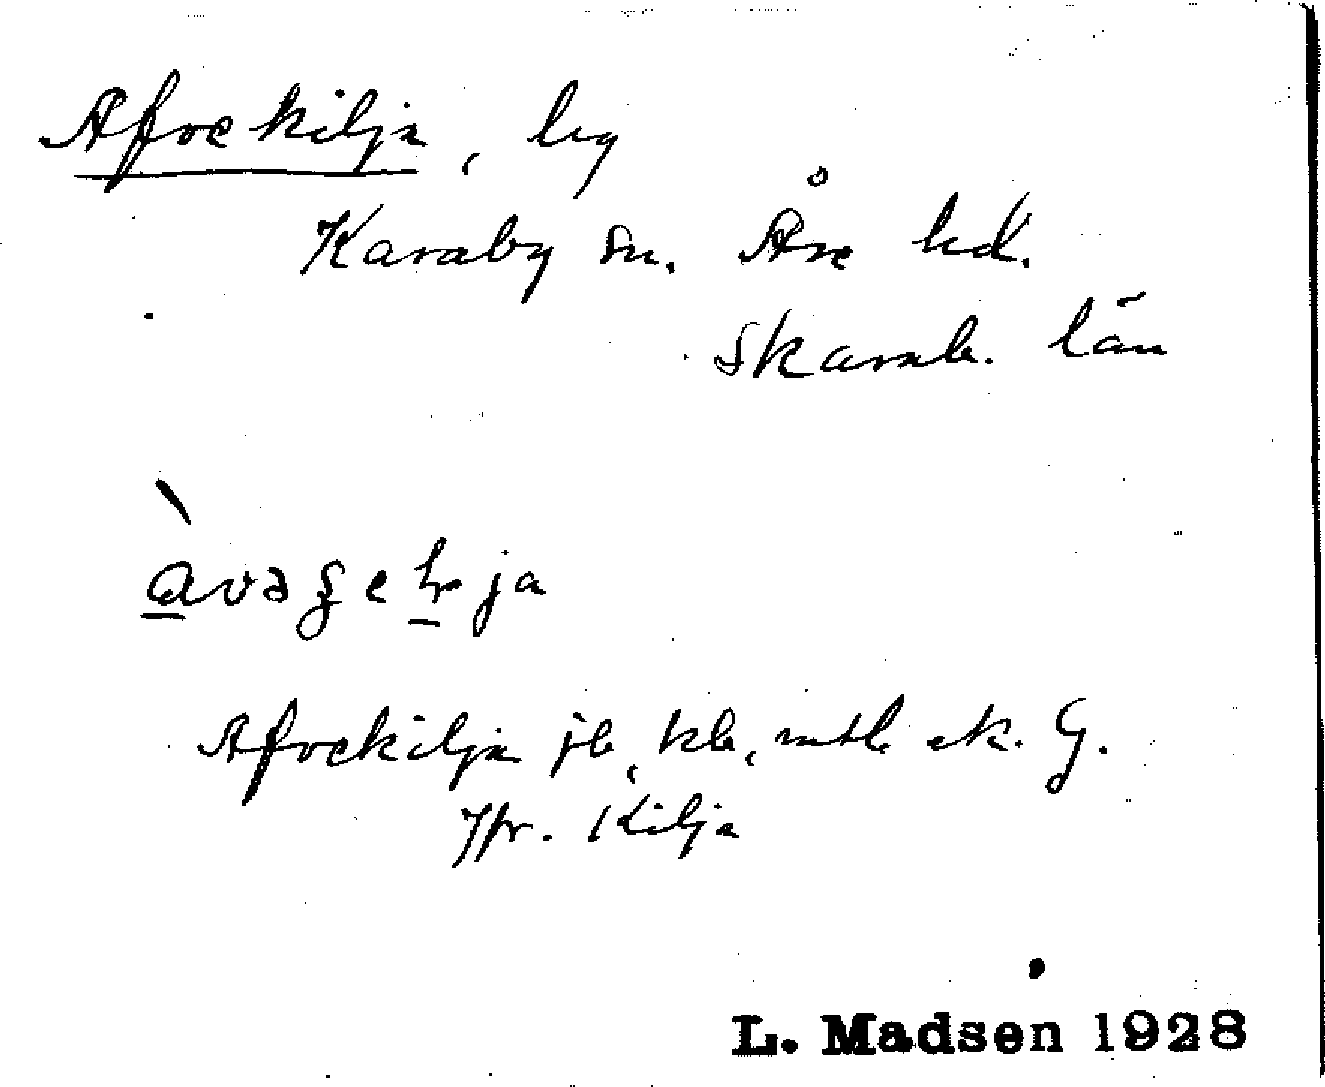 Afvekilja, by
Karaby sn. Åse hd.
Skarab. län
Afvekilja jb, kb, mtl. ek. G.
Jfr. Kilja
L. Madsen 1928